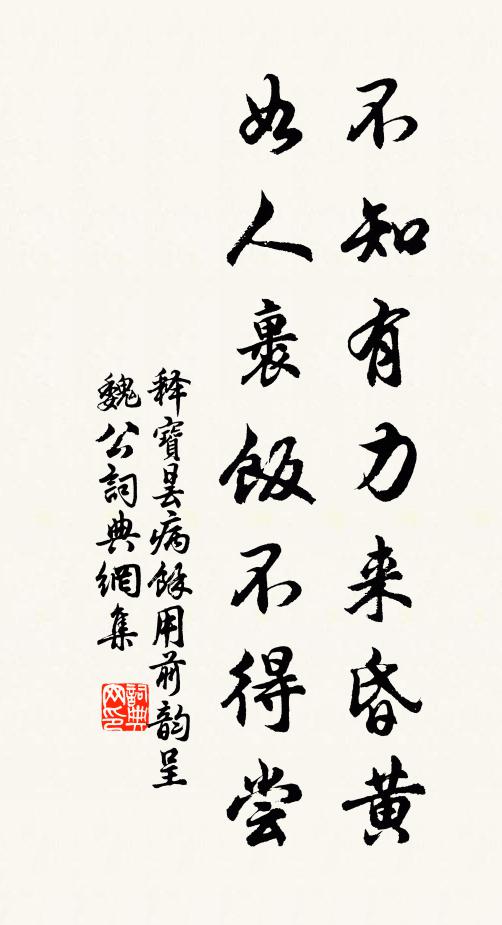 不知有力来昏黄
如人裹飯不得尝
释寶昙病餘用前韵呈
魏公詞典網集
詞典网印